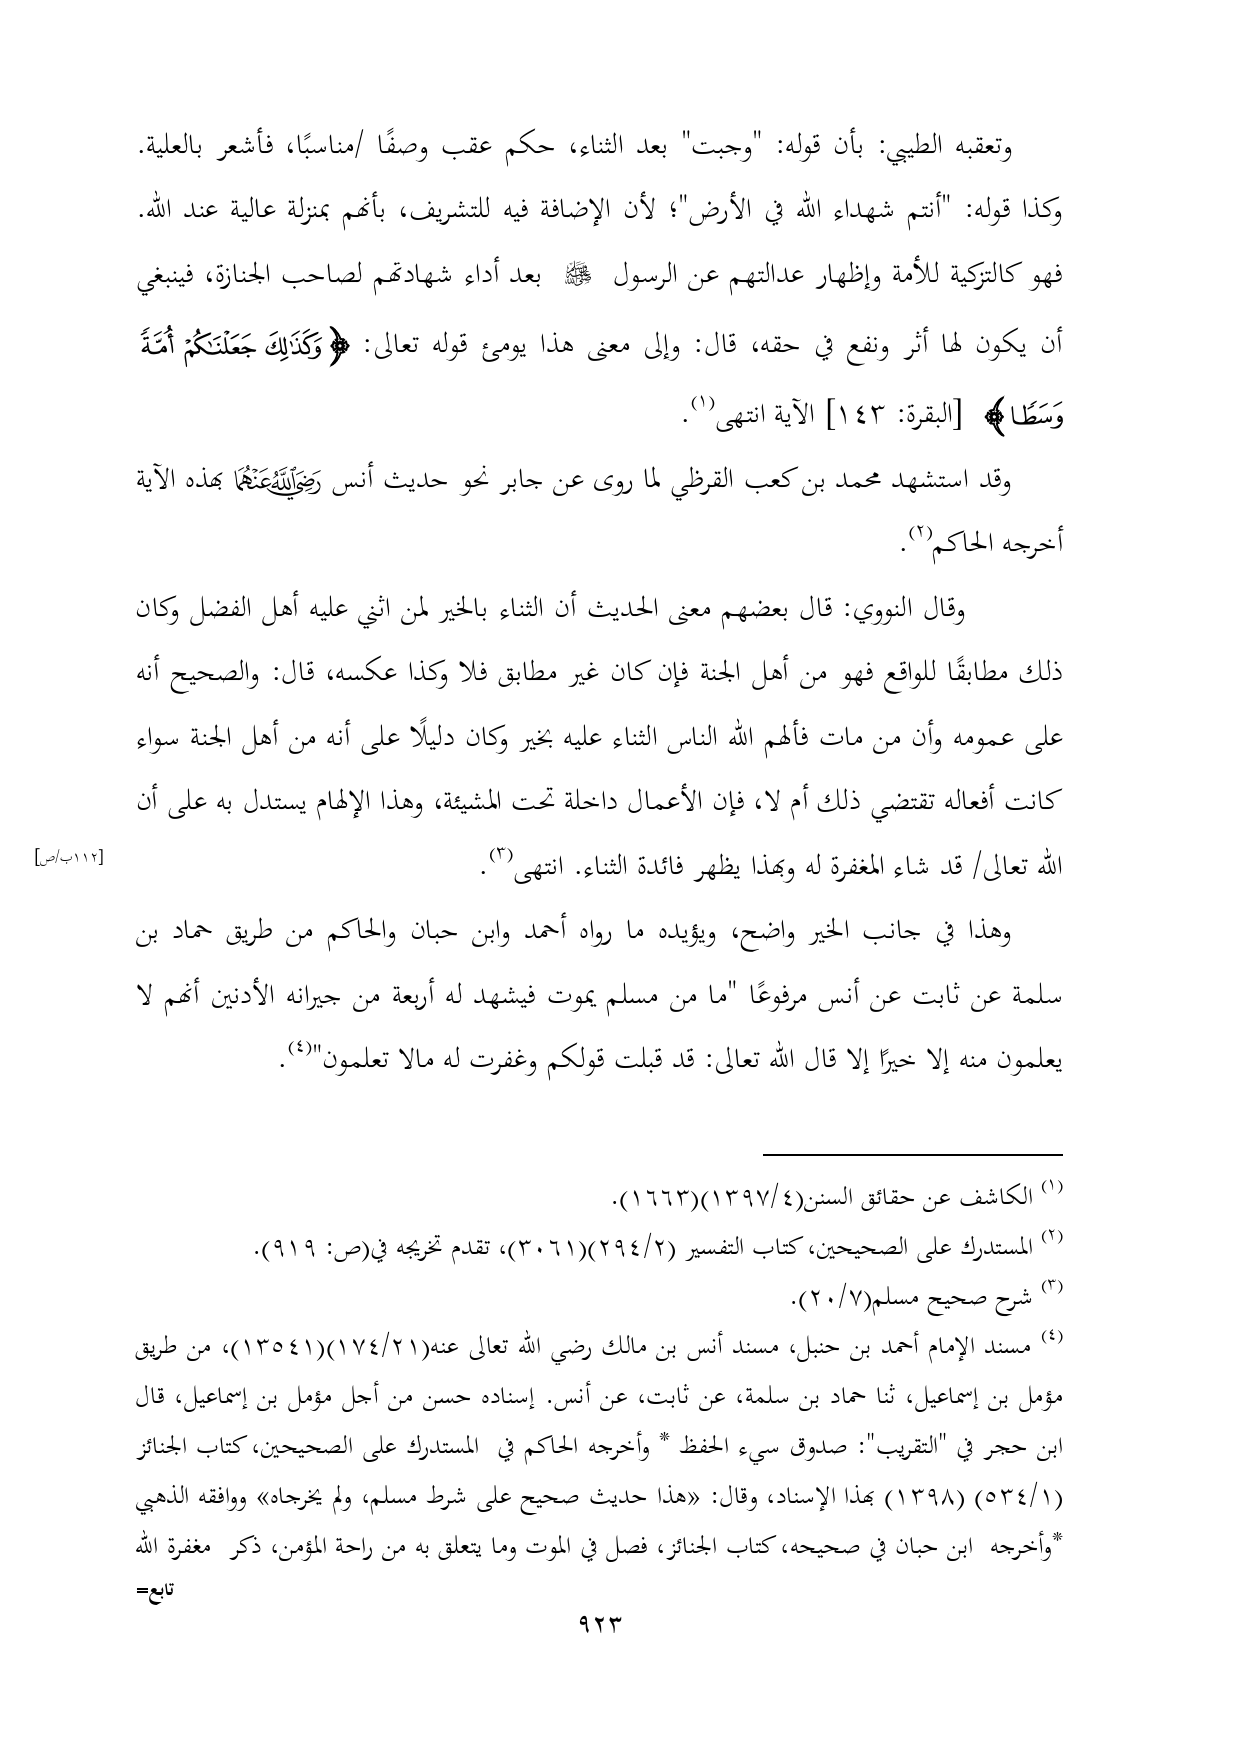 وتعقبه الطيبي: بأن قوله: "وجبت" بعد الثناء، حكم عقب وصفًا /مناسبًا، فأشعر بالعلية.
وكذا قوله: "أنتم شهداء الله في الأرض"؛ لأن الإضافة فيه للتشريف، بأنهم بمنزلة عالية عند الله.
فهو كالتزكية للأمة وإظهار عدالتهم عن الرسول ﷺ بعد أداء شهادتهم لصاحب الجنازة، فينبغي
أن يكون لها أثر ونفع في حقه، قال: وإلى معنى هذا يومئ قوله تعالى: ﴿وَكَذَٰلِكَ جَعَلْنَٰكُمْ أُمَّةً
وَسَطًا﴾ [البقرة: ١٤٣] الآية انتهى(١).
وقد استشهد محمد بن كعب القرظي لما روى عن جابر نحو حديث أنس رَضِيَ اللَّهُ عَنْهُمَا بهذه الآية
أخرجه الحاكم(٢).
وقال النووي: قال بعضهم معنى الحديث أن الثناء بالخير لمن اثني عليه أهل الفضل وكان
ذلك مطابقًا للواقع فهو من أهل الجنة فإن كان غير مطابق فلا وكذا عكسه، قال: والصحيح أنه
على عمومه وأن من مات فألهم الله الناس الثناء عليه بخير وكان دليلًا على أنه من أهل الجنة سواء
كانت أفعاله تقتضي ذلك أم لا، فإن الأعمال داخلة تحت المشيئة، وهذا الإلهام يستدل به على أن
الله تعالى/ قد شاء المغفرة له وبهذا يظهر فائدة الثناء. انتهى(٣).
[١١٢ب/ص]
وهذا في جانب الخير واضح، ويؤيده ما رواه أحمد وابن حبان والحاكم من طريق حماد بن
سلمة عن ثابت عن أنس مرفوعًا "ما من مسلم يموت فيشهد له أربعة من جيرانه الأدنين أنهم لا
يعلمون منه إلا خيرًا إلا قال الله تعالى: قد قبلت قولكم وغفرت له مالا تعلمون"(٤).
(١) الكاشف عن حقائق السنن(١٣٩٧/٤)(١٦٦٣).
(٢) المستدرك على الصحيحين، كتاب التفسير (٢٩٤/٢)(٣٠٦١)، تقدم تخريجه في(ص: ٩١٩).
(٣) شرح صحيح مسلم(٢٠/٧).
(٤) مسند الإمام أحمد بن حنبل، مسند أنس بن مالك رضي الله تعالى عنه(١٧٤/٢١)(١٣٥٤١)، من طريق
مؤمل بن إسماعيل، ثنا حماد بن سلمة، عن ثابت، عن أنس. إسناده حسن من أجل مؤمل بن إسماعيل، قال
ابن حجر في "التقريب": صدوق سيء الحفظ * وأخرجه الحاكم في المستدرك على الصحيحين، كتاب الجنائز
(٥٣٤/١) (١٣٩٨) بهذا الإسناد، وقال: «هذا حديث صحيح على شرط مسلم، ولم يخرجاه» ووافقه الذهبي
*وأخرجه ابن حبان في صحيحه، كتاب الجنائز، فصل في الموت وما يتعلق به من راحة المؤمن، ذكر مغفرة الله
تابع=
٩٢٣